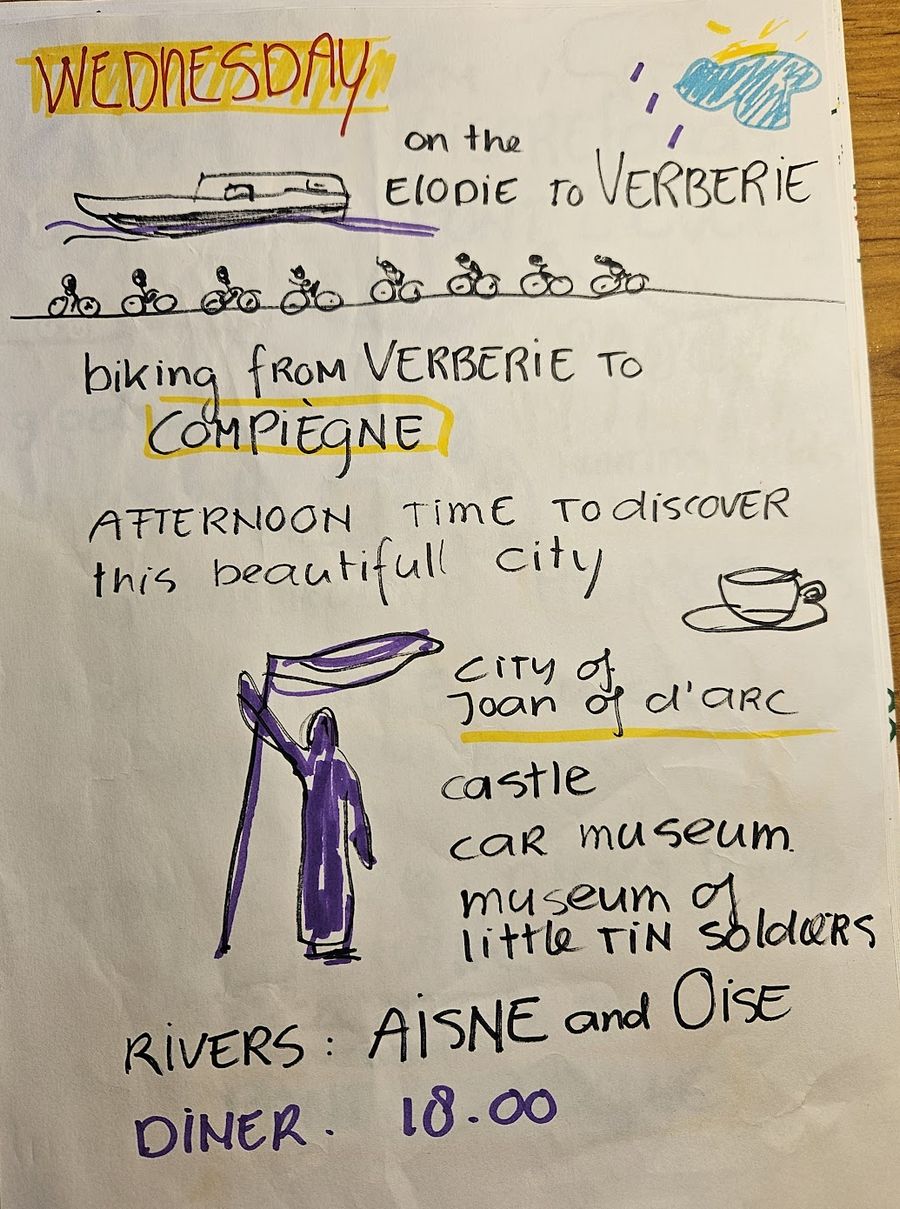 WEDNESDAY
on the
ELODIE TO VERBERIE
biking from VERBERIE TO
COMPIÈGNE
AFTERNOON TIME TO discover
this beautifull city
CITY of
Joan of d'ARC
castle
CAR museum.
museum of
little TIN soldiers
RIVERS: AISNE and OISE
DINER. 18.00